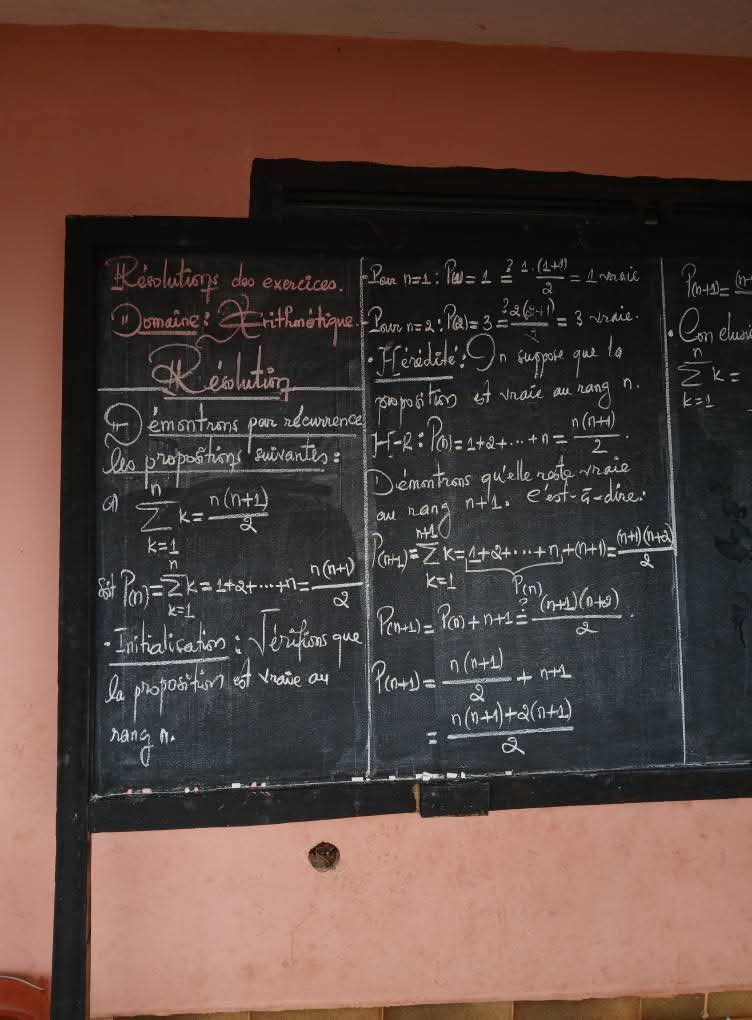 Résolutions des exercices.
Domaine : Arithmétique
Résolution
Démontrons par récurrence
les propositions suivantes :
a) \sum_{k=1}^{n} k = \frac{n(n+1)}{2}
Soit P(n) = \sum_{k=1}^{n} k = 1+2+...+n = \frac{n(n+1)}{2}
• Initialisation : Vérifions que
la proposition est vraie au
rang n.
- Pour n=1 : P(1) = 1 \stackrel{?}{=} \frac{1·(1+1)}{2} = 1 vraie
- Pour n=2 : P(2) = 3 \stackrel{?}{=} \frac{2(2+1)}{2} = 3 vraie.
• Hérédité : On suppose que la
proposition est vraie au rang n.
H-R : P(n) = 1+2+...+n = \frac{n(n+1)}{2}.
Démontrons qu'elle reste vraie
au rang n+1. C'est-à-dire :
P(n+1) = \sum_{k=1}^{n+1} k = \underbrace{1+2+...+n}_{P(n)} + (n+1) = \frac{(n+1)(n+2)}{2}
P(n+1) = P(n) + n+1 \stackrel{?}{=} \frac{(n+1)(n+2)}{2}.
P(n+1) = \frac{n(n+1)}{2} + n+1
= \frac{n(n+1)+2(n+1)}{2}
P(n+1) =
•
\sum_{k=1}^{n} k =